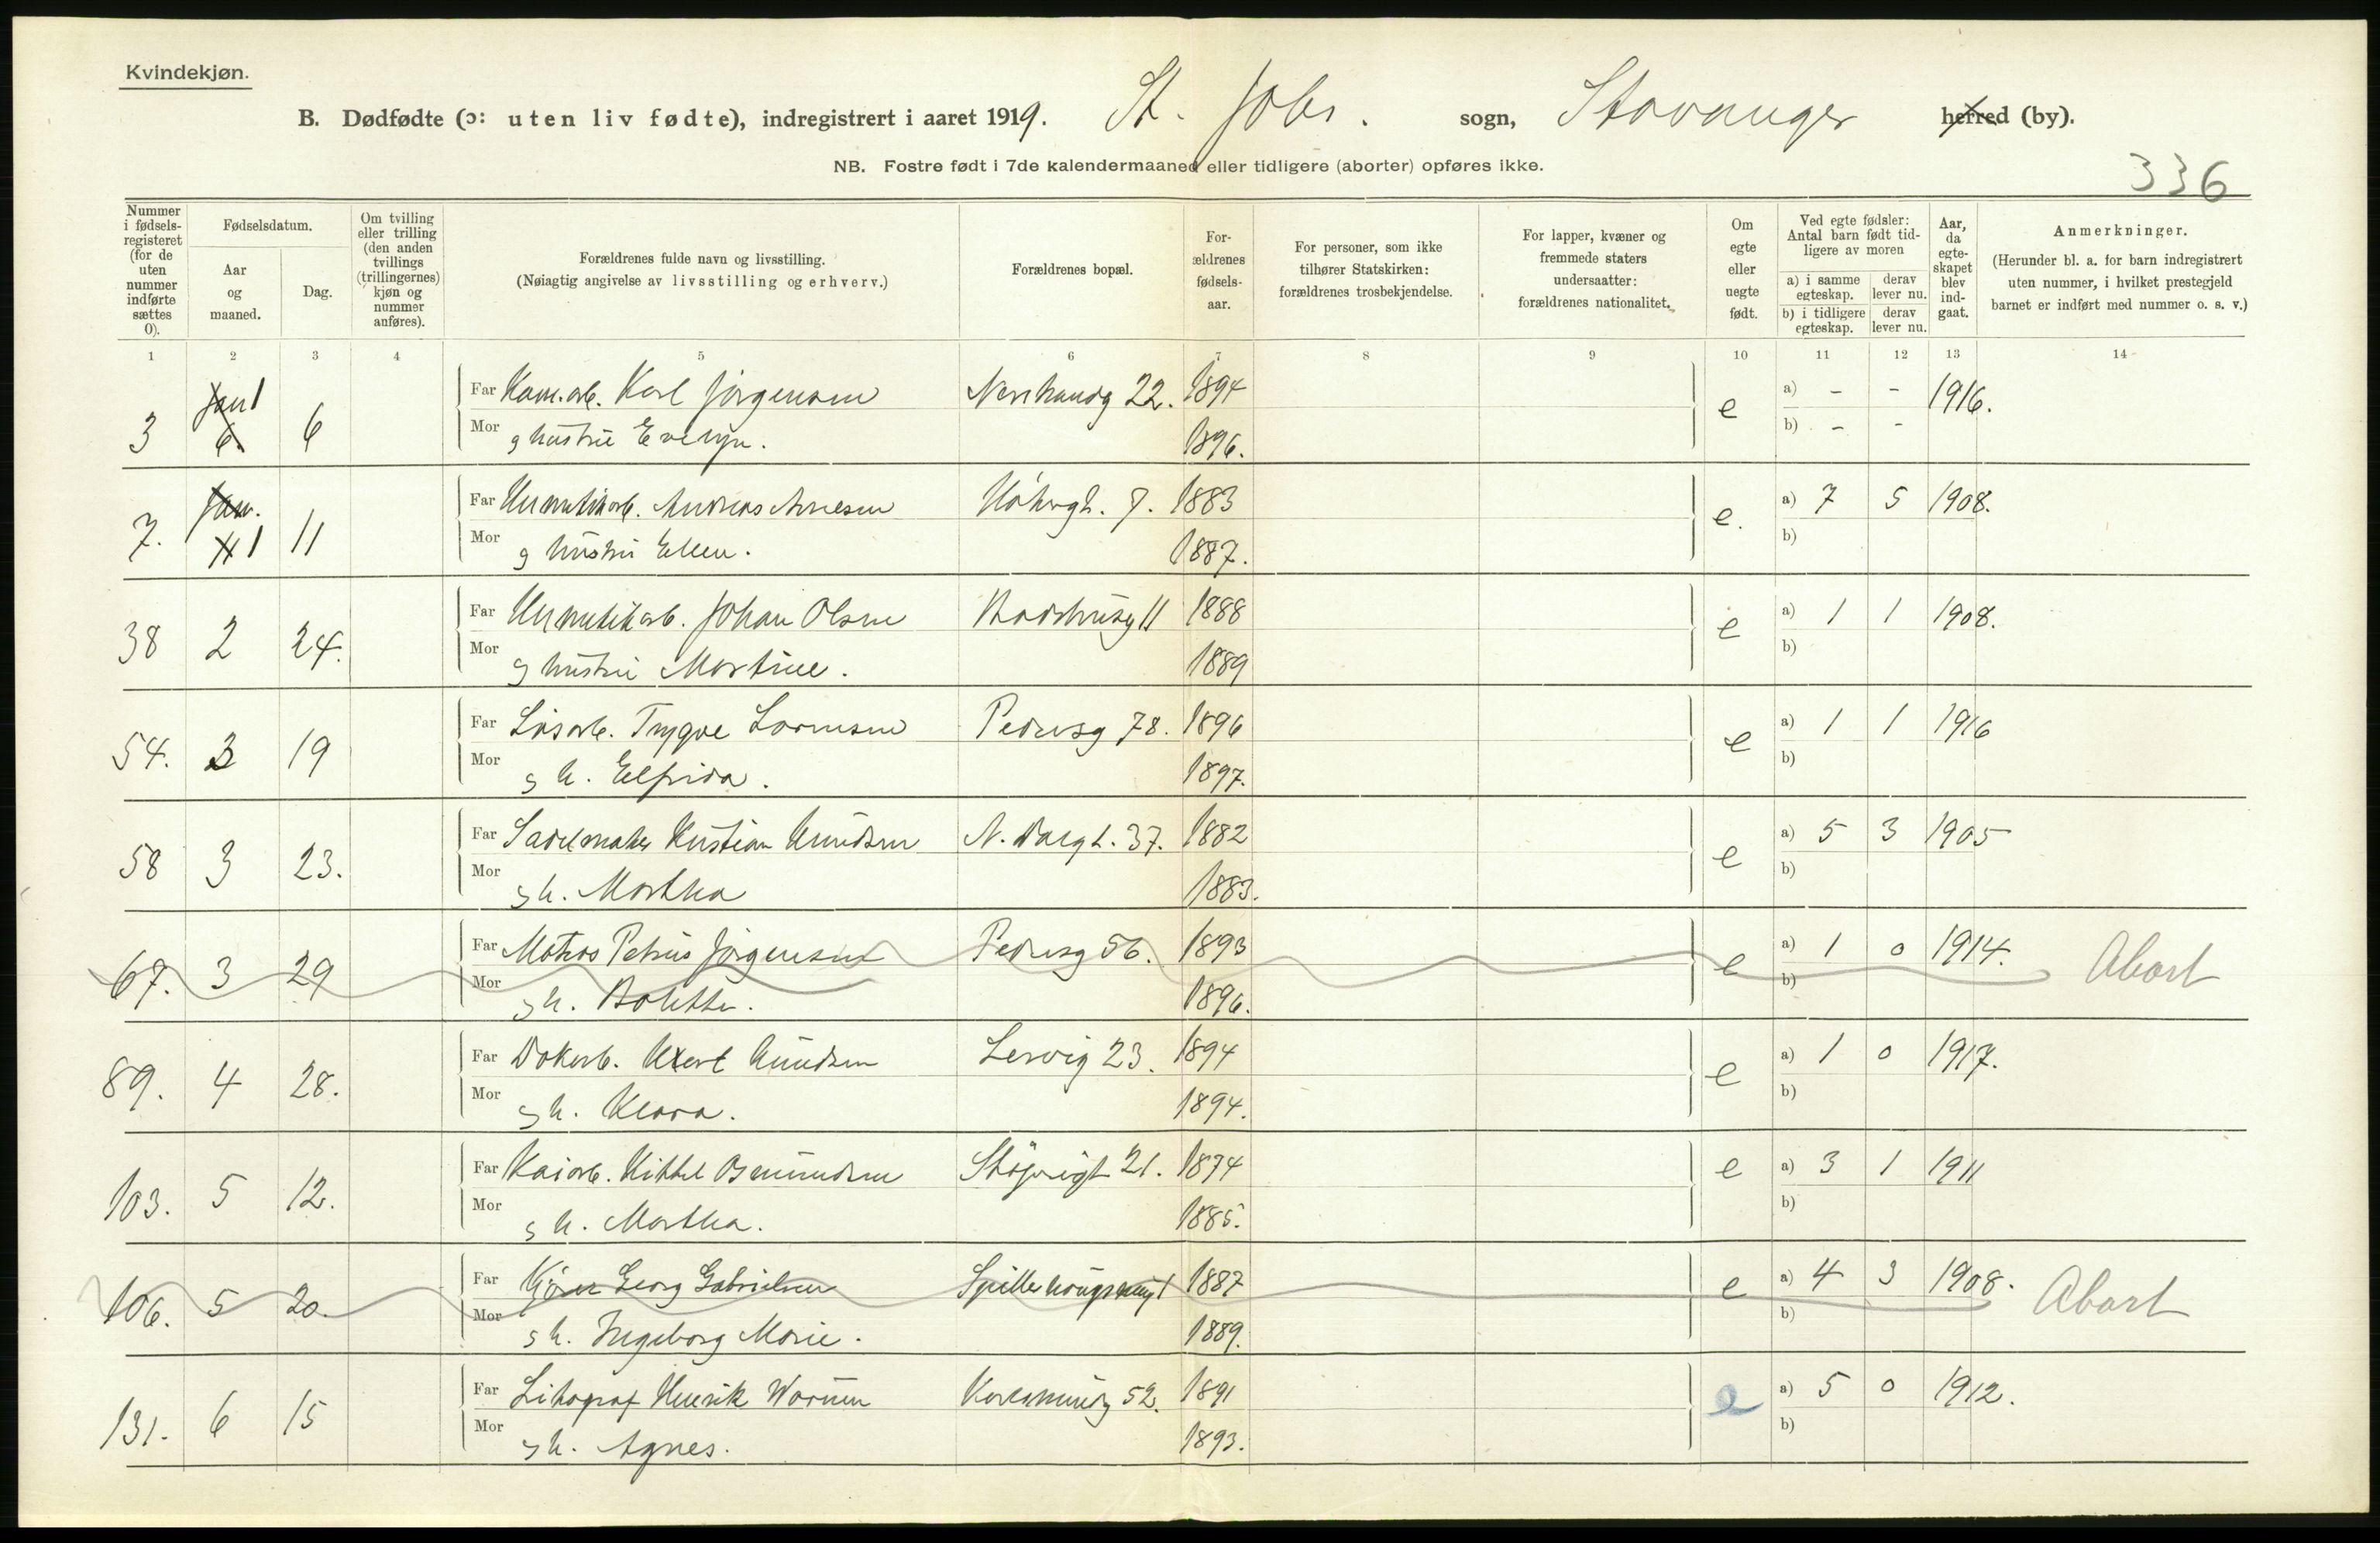 Kvindekjøn.
B. Dødfødte (ɔ: uten liv fødte), indregistrert i aaret 1919. St. Johs. sogn, Stavanger herred (by).
NB. Fostre født i 7de kalendermaaned eller tidligere (aborter) opføres ikke.
336
Nummer i fødsels-registeret (for de uten nummer indførte sættes 0).
Fødselsdatum.
Aar og maaned.
Dag.
Om tvilling eller trilling (den anden tvillings (trillingernes) kjøn og nummer anføres).
Forældrenes fulde navn og livsstilling.
(Nøiagtig angivelse av livsstilling og erhverv.)
Forældrenes bopæl.
For-ældrenes fødsels-aar.
For personer, som ikke tilhører Statskirken: forældrenes trosbekjendelse.
For lapper, kvæner og fremmede staters undersaatter: forældrenes nationalitet.
Om egte eller uegte født.
Ved egte fødsler: Antal barn født tid-ligere av moren
a) i samme egteskap. derav lever nu.
b) i tidligere egteskap. derav lever nu.
Aar, da egte-skapet blev ind-gaat.
Anmerkninger.
(Herunder bl. a. for barn indregistrert uten nummer, i hvilket prestegjeld barnet er indført med nummer o. s. v.)
1 2 3 4 5 6 7 8 9 10 11 12 13 14
3 Jan 1 6 6 Far Karl Jørgensen 22. 1894 e a) - - 1916.
Mor g hustru Evelyn. 1896. b) - -
7. Jan. 1 11 Far Hermetikarb. Andreas Arnesen 7. 1883 e. a) 7 5 1908.
Mor g hustru Ellen. 1887. b)
38 2 24. Far Hermetikarb. Johan Olsen 11 1888 e a) 1 1 1908.
Mor g hustru Martine. 1889 b)
54. 3 19 Far Løsarb. Trygve Pedersg 78. 1896 e a) 1 1 1916
Mor g h. Elfrida. 1897. b)
58 3 23. Far Sadelmaker Kristian Knudsen N. Dalgt. 37. 1882 e a) 5 3 1905
Mor g h. Martha 1883. b)
67. 3 29 Far Matros Petrus Jørgensen Pedersg 56. 1893 e a) 1 0 1914. Abort
Mor g h. Bolette. 1896. b)
89. 4 28. Far Dokarb. Knudsen Lervig 23. 1894 e a) 1 0 1917.
Mor g h. Klara. 1894. b)
103. 5 12. Far Kaiarb. Kittel Osmundsen 21. 1874 e a) 3 1 1911
Mor g h. Martha. 1885. b)
106. 5 20. Far Kjører Georg Gabrielsen 1887 e a) 4 3 1908. Abort
Mor g h. Ingeborg Marie. 1889. b)
131. 6 15 Far Litograf Henrik 52. 1891 e a) 5 0 1912.
Mor g h. Agnes. 1893. b)